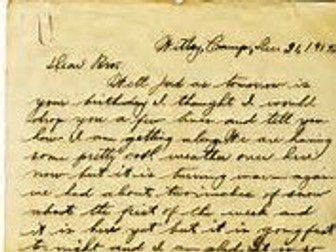 Witley, Camp, Dec 26, 191
Dear Bro.
Well Jud as tomorrow is
your birthday I thought I would
drop you a few lines and tell you
how I am getting along We are having
some pretty cool weather over here
now but it is turning warm again
we had about two inches of snow
about the first of the week and
it is here yet but it is going fast
to night and I am